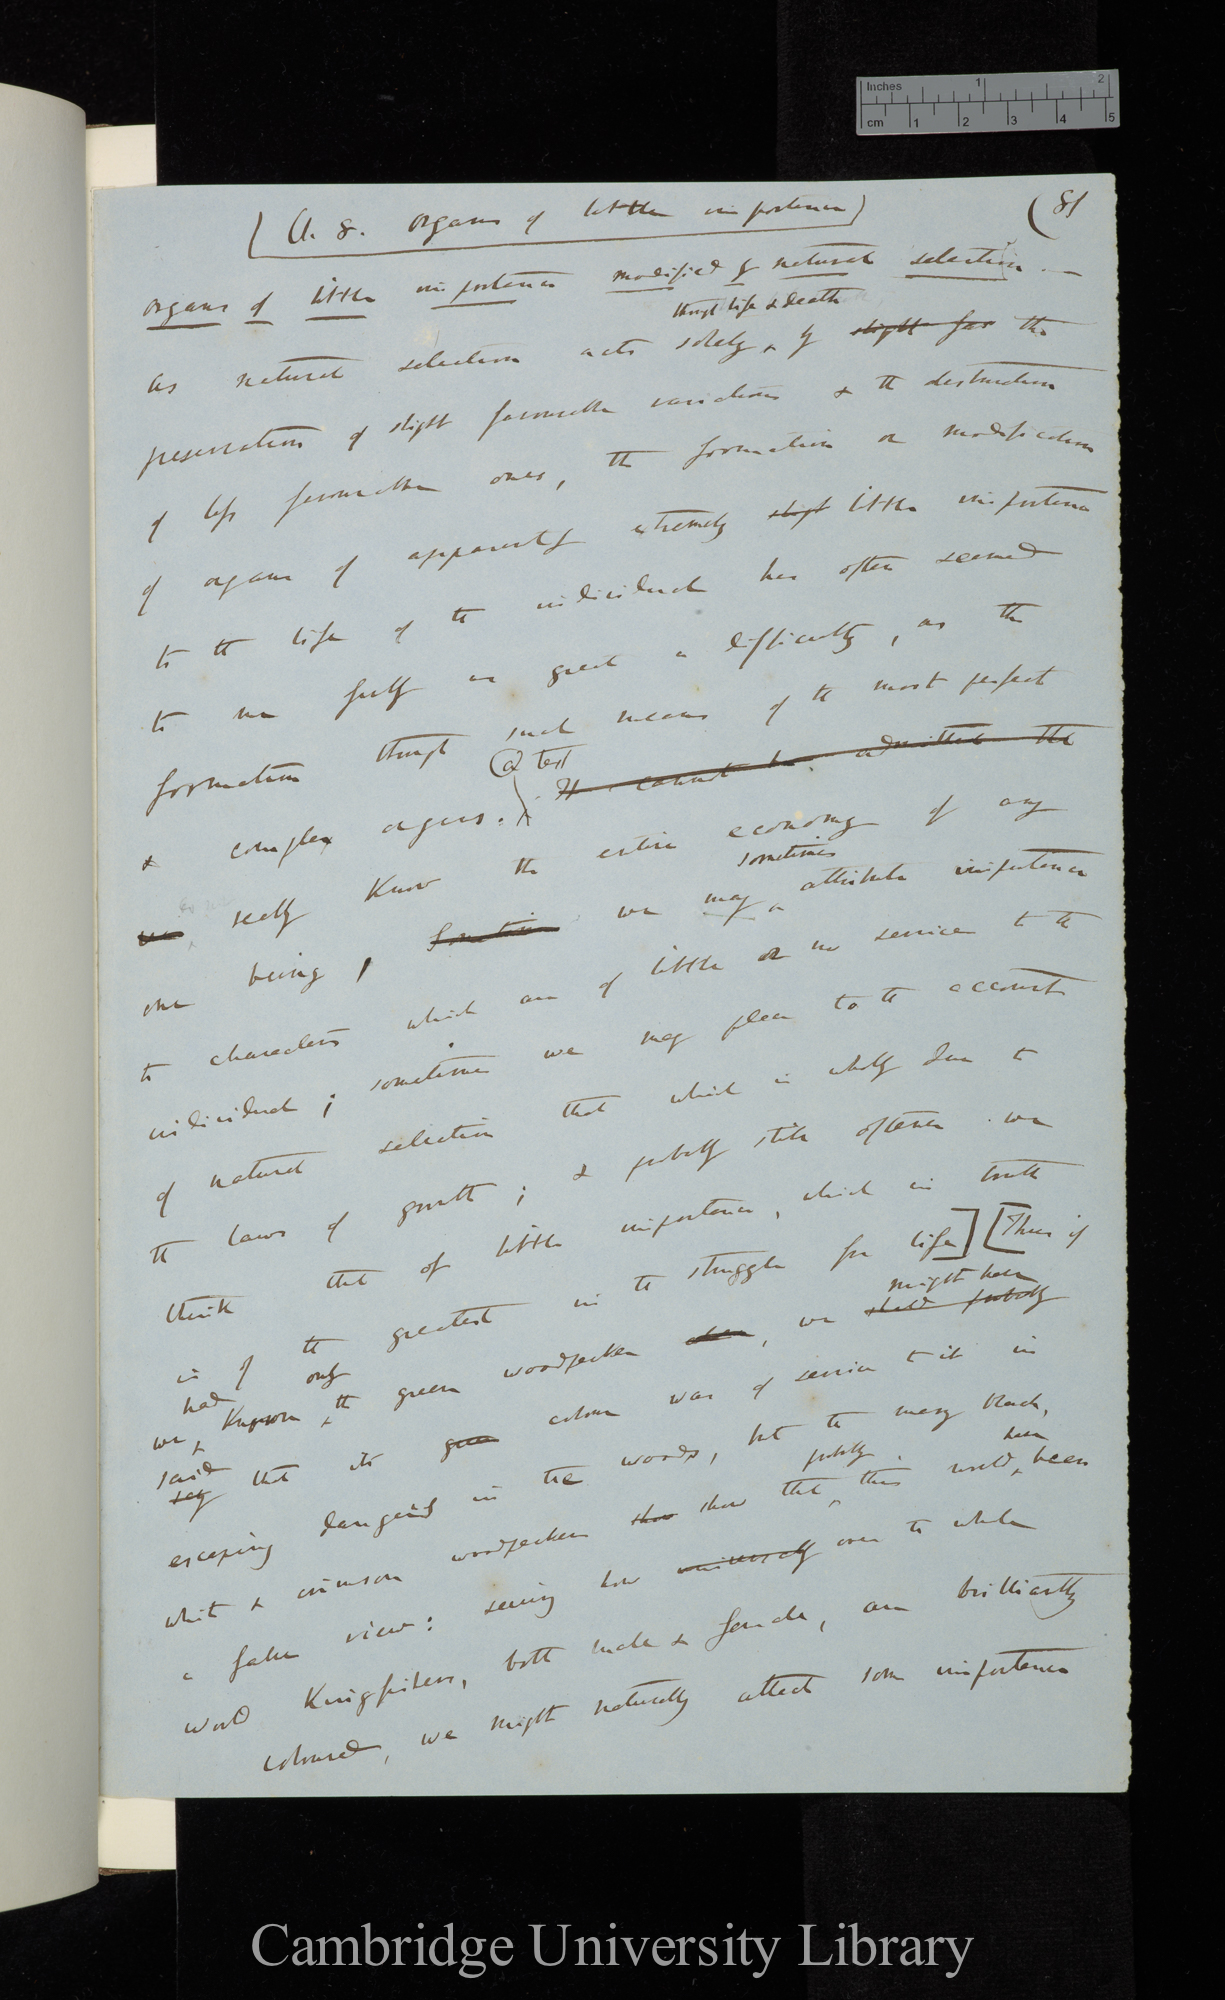 Inches 1 2
cm 1 2 3 4 5
(Ch. 8. Organs of little importance) (81
Organs of little importance modified by natural selection.—
through life & death
As natural selection acts solely, by slight fav the
preservation of slight favourable variations & the destruction
of less favourable ones, the formation or modification
of organs of apparently extremely slight little importance
to the life of the individual has often seemed
to me fully as great a difficulty, as the
formation through such means of the most perfect
(a) text
& complex organs. It cannot be admitted that
we really know the entire economy of any
sometimes
one being, Sometimes we may attribute importance
to characters which are of little or no service to the
individual; sometimes we may place to the account
of natural selection that which is wholly due to
the laws of growth; & probably still oftener we
think that of little importance, which in truth
is of the greatest in the struggle for life] [Thus if
had only might have
we known the green woodpecker alone, we should probably
said
say that its green colour was of service to it in
escaping dangers in the woods, but the many black,
probably have
white & crimson woodpeckers show show that this would been
a false view: seeing how universally over the whole
world Kingfishers, both male & female, are brilliantly
coloured, we might naturally attach some importance
Cambridge University Library